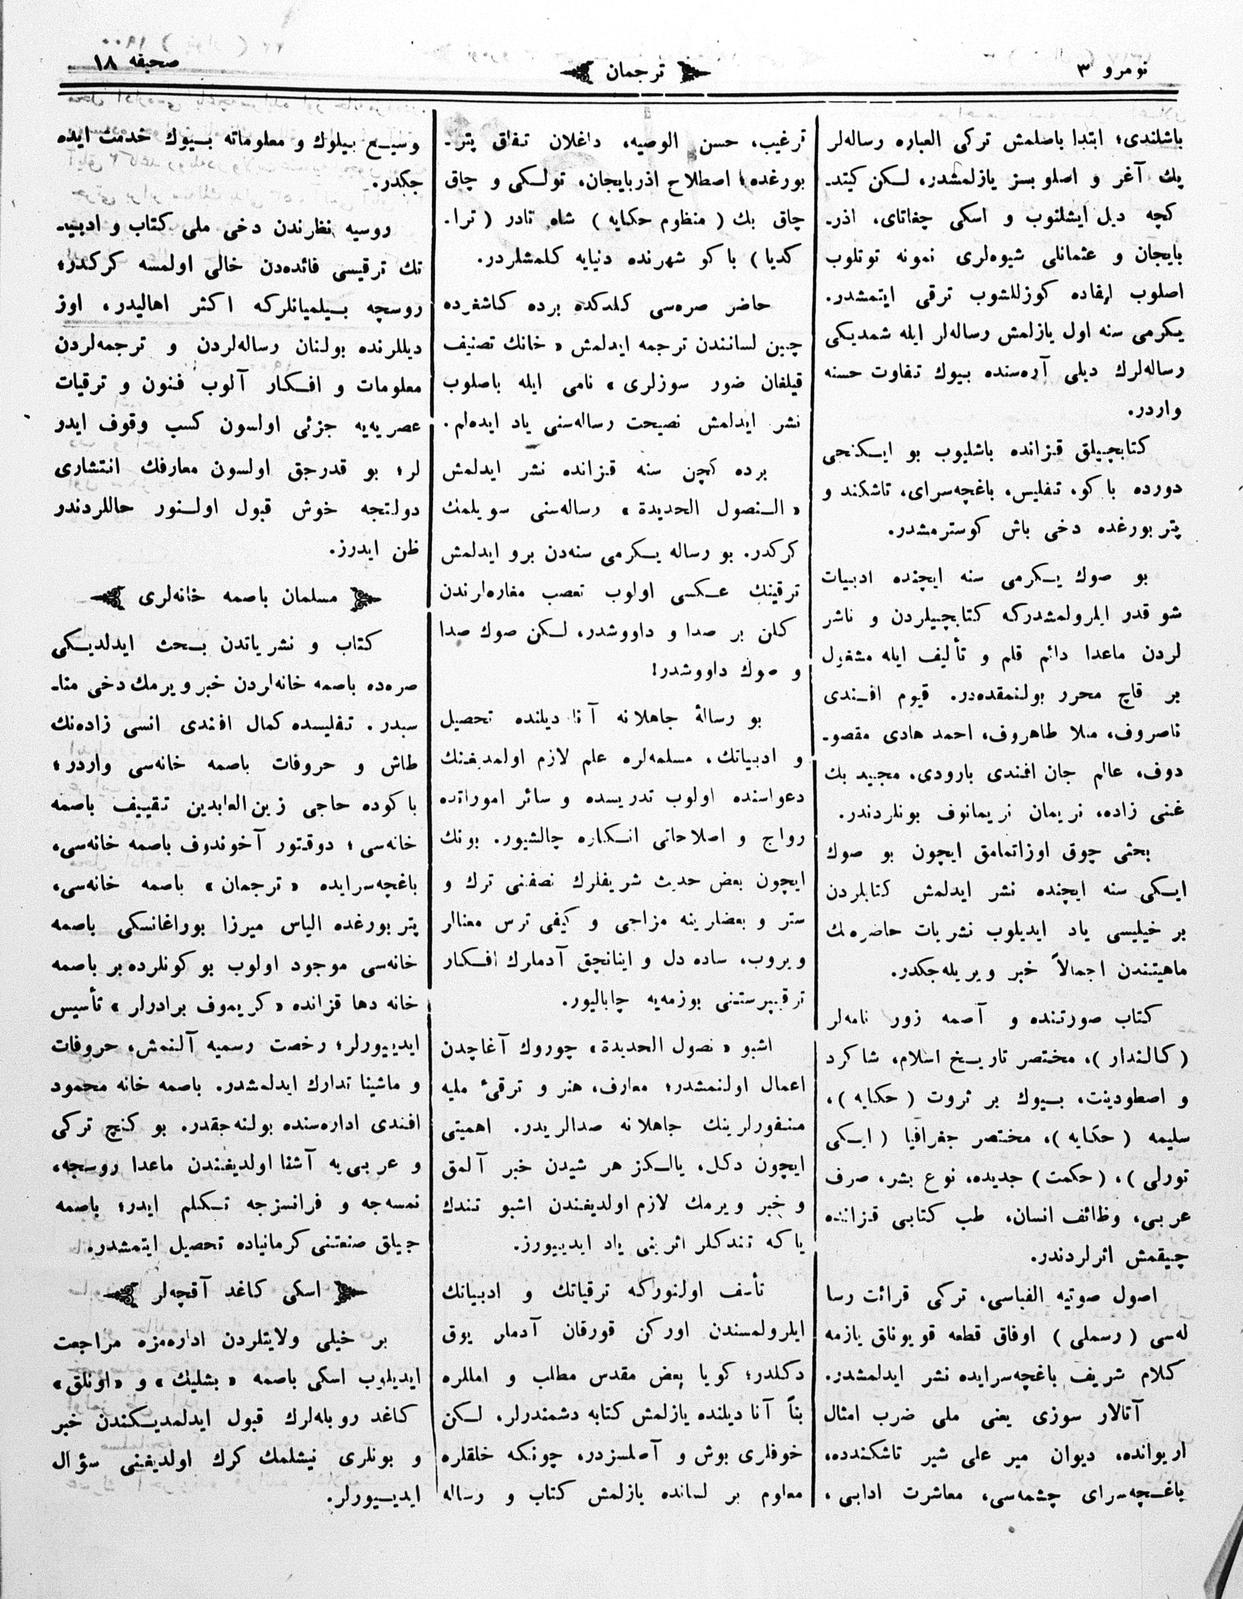 نومرو ٣
ترجمان
صحيفه ١٨
باشلندى؛ ابتدا باصلمش تركى العباره رساله‌لر
پك آغر و اصلوبسز يازلمشدر، لكن كتد-
كچه ديل ايشلنوب و اسكى چغاتاى، اذر-
بايجان و عثمانلى شيوه‌لرى نمونه توتلوب
اصلوب ايفاده كوزللشوب ترقى ايتمشدر.
يكرمى سنه اول يازلمش رساله‌لر ايله شمديكى
رساله‌لرك ديلى آره‌سنده بيوك تفاوت حسنه
واردر.
كتابچيلق قزانده باشليوب بو ايكنجى
دورده باكو، تفليس، باغچه‌سراى، تاشكند و
پتربورغده دخى باش كوسترمشدر.
بو صوك يكرمى سنه ايچنده ادبيات
شو قدر ايلرولمشدركه كتابچيلردن و ناشر
لردن ماعدا دائم قلم و تأليف ايله مشغول
بر قاچ محرر بولنمقده‌در. قيوم افندى
ناصروف، منلا طاهروف، احمد هادى مقصو-
دوف، عالم جان افندى بارودى، مجيد بك
غنى زاده، نريمان نريمانوف بونلردندر.
بحثى چوق اوزاتمامق ايچون بو صوك
ايكى سنه ايچنده نشر ايدلمش كتابلردن
بر خيليسى ياد ايديلوب نشريات حاضره‌نك
ماهيتندن اجمالاً خبر ويريله‌جكدر.
كتاب صورتنده و آصمه زور نامه‌لر
(كالندار)، مختصر تاريخ اسلام، شاكرد
و اصطودينت، بيوك بر ثروت (حكايه)،
سليمه (حكايه)، مختصر جغرافيا (ايكى
تورلى)، (حكمت) جديده، نوع بشر، صرف
عربى، وظائف انسان، طب كتابى قزانده
چيقمش اثرلردندر.
اصول صوتيه الفباسى، تركى قرائت رسا
له‌سى (رسملى) اوفاق قطعه قويونلق يازمه
كلام شريف باغچه‌سرايده نشر ايدلمشدر.
آتالار سوزى يعنى ملى ضرب امثال
اريوانده، ديوان مير على شير تاشكندده،
باغچه‌سراى چشمه‌سى، معاشرت ادابى،
ترغيب، حسن الوصيه، داغلان تفاق پتر-
بورغده؛ اصطلاح اذربايجان، تولكى و چاق
چاق بك (منظوم حكايه) شاه نادر (ترا-
كديا) باكو شهرنده دنيايه كلمشلردر.
حاضر صره‌سى كلدكده برده كاشغرده
چين لسانندن ترجمه ايدلمش «خانك تصنيف
قيلغان ضور سوزلرى» نامى ايله باصلوب
نشر ايدلمش نصيحت رساله‌سنى ياد ايده‌لم.
برده كچن سنه قزانده نشر ايدلمش
«النصول الحديدة» رساله‌سنى سويلمك
كركدر. بو رساله يكرمى سنه‌دن برو ايدلمش
ترقينك عكسى اولوب تعصب مغاره‌لرندن
كلن بر صدا و داووشدر، لكن صوك صدا
و صوك داووشدر!
بو رسالهٔ جاهلانه آنا ديلنده تحصيل
و ادبياتك، مسلمه‌لره علم لازم اولمديغنك
دعواسنده اولوب تدريسده و سائر اموراتده
رواج و اصلاحاتى انكاره چالشيور. بونك
ايچون بعض حديث شريفلرك نصفنى ترك و
ستر و بعضلرينه مزاجى و كيفى ترس معنالر
ويروب، ساده دل و اينانچق آدملرك افكار
ترقيپرستنى بوزمه‌يه چاباليور.
اشبو «نصول الحديدة» چوروك آغاچدن
اعمال اولنمشدر؛ معارف، هنر و ترقئ مليه
منفورلرينك جاهلانه صدالريدر. اهميتى
ايچون دكل، يالكز هر شيدن خبر آلمق
و خبر ويرمك لازم اولديغندن اشبو تندك
ياكه تندكلر اثرينى ياد ايدييورز.
تأسف اولنوركه ترقياتك و ادبياتك
ايلرولمسندن اوركن قورقان آدملر يوق
دكلدر؛ كويا بعض مقدس مطلب و امللره
بناً آنا ديلنده يازلمش كتابه دشمندرلر، لكن
خوفلرى بوش و آصلسزدر، چونكه خلقلره
معلوم بر لسانده يازلمش كتاب و رساله
وسيع بيلوك و معلوماته بيوك خدمت ايده
جكدر.
روسيه نظرندن دخى ملى كتاب و ادبيا-
تك ترقيسى فائده‌دن خالى اولمسه كركدر؛
روسچه بيلميانلركه اكثر اهاليدر، اوز
ديللرنده بولنان رساله‌لردن و ترجمه‌لردن
معلومات و افكار آلوب فنون و ترقيات
عصريه‌يه جزئى اولسون كسب وقوف ايدر
لر؛ بو قدرجق اولسون معارفك انتشارى
دولتجه خوش قبول اولنور حاللردندر
ظن ايدرز.
مسلمان باصمه خانه‌لرى
كتاب و نشرياتدن بحث ايدلديكى
صره‌ده باصمه خانه‌لردن خبر ويرمك دخى منا-
سبدر. تفليسده كمال افندى انسى زاده‌نك
طاش و حروفات باصمه خانه‌سى واردر؛
باكوده حاجى زين‌العابدين تقييف باصمه
خانه‌سى؛ دوقتور آخوندوف باصمه خانه‌سى،
باغچه‌سرايده «ترجمان» باصمه خانه‌سى،
پتربورغده الياس ميرزا بوراغانسكى باصمه
خانه‌سى موجود اولوب بو كونلرده بر باصمه
خانه دها قزانده «كريموف برادرلر» تأسيس
ايدييورلر؛ رخصت رسميه آلنمش، حروفات
و ماشينا تدارك ايدلمشدر. باصمه خانه محمود
افندى اداره‌سنده بولنه‌جقدر. بو كنچ تركى
و عربى‌يه آشنا اولديغندن ماعدا روسجه،
نمسه‌جه و فرانسزجه تكلم ايدر؛ باصمه
جيلق صنعتنى كرمانياده تحصيل ايتمشدر.
اسكى كاغد آقچه‌لر
بر خيلى ولايتلردن اداره‌مزه مراجعت
ايديلوب اسكى باصمه «بشليك» و «اونلق»
كاغد روبله‌لرك قبول ايدلمديكندن خبر
و بونلرى نيشلمك كرك اولديغنى سؤال
ايدييورلر.